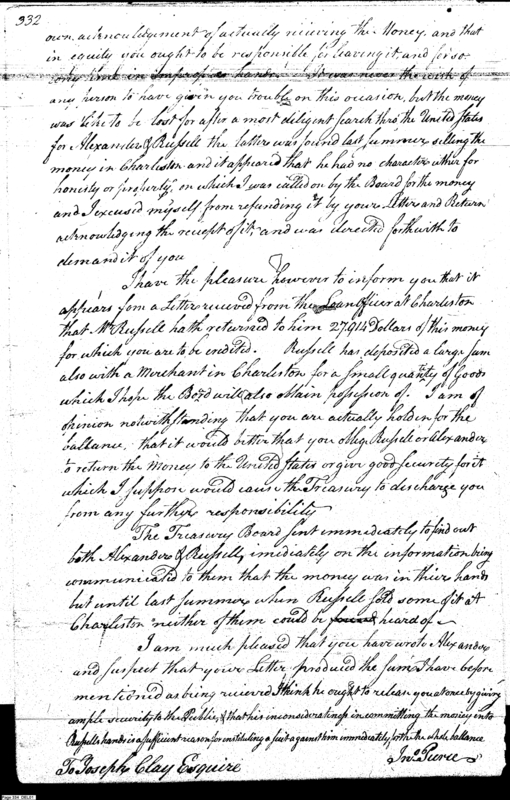 332
own acknowledgement of actually receiving the Money, and that
in equity you ought to be responsible for leaving it, and for so
long time in improper hands. It was never the wish of
any person to have given you trouble on this occasion, but the money
was like to be lost for after a most deligent search thro the United States
for Alexander & Russell the latter was found last summer selling the
money in Charleston and it appeared that he had no character either for
honesty or property, on which I was called on by the Board for the money
and I excused myself from refunding it by your Letter and Return
acknowledging the receipt of it, and was directed forthwith to
demand it of you
I have the pleasure however to inform you that it
appears from a Letter received from the Loan Officer at Charleston
that Mr Russell hath returned to him 27,914 Dollars of this money
for which you are to be credited. Russell has deposited a large sum
also with a Merchant in Charleston for a Small quantity of Goods
which I hope the Board will also obtain possession of. I am of
opinion notwithstanding that you are actually holden for the
ballance, that it would bitter that you oblige Russell or Alexander
to return the money to the United States or give good security for it
which I suppose would cause the Treasury to discharge you
from any further responsibility
The Treasury Board sent immediately to find out
both Alexander & Russell, imediately on the information being
communicated to them that the money was in their hands
but until last summer when Russell sold some of it at
Charleston neither of them could be found heard of
I am much pleased that you have wrote Alexander
and suspect that your Letter produced the sum I have before
mentioned as being recieved I think he ought to release you at once by giving
ample security to the Public, & that his inconsideratness in committing the money into
Russells hands is a sufficient reason for instituting a suit against him immediately, for the whole ballance
Jno Pierce
To Joseph Clay Esquire
Page 334 DBL01